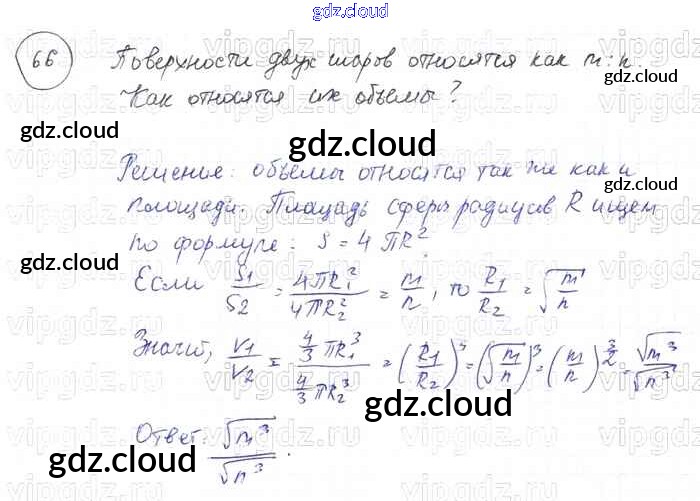 gdz.cloud
66 Поверхности двух шаров относятся как m:n.
Как относятся их объемы?
gdz.cloud
gdz.cloud
gdz.cloud
Решение: объемы относятся так же как и
площади. Площадь сферы радиусов R ищем
по формуле: S = 4πR²
gdz.cloud
gdz.cloud
Если S₁/S₂ = 4πR₁²/4πR₂² = m/n, то R₁/R₂ = √m/n
Значит, V₁/V₂ = 4/3 πR₁³ / 4/3 πR₂³ = (R₁/R₂)³ = (√m/n)³ = (m/n)^3/2 = √m³/√n³
gdz.cloud
Ответ: √m³/√n³.
gdz.cloud
gdz.cloud